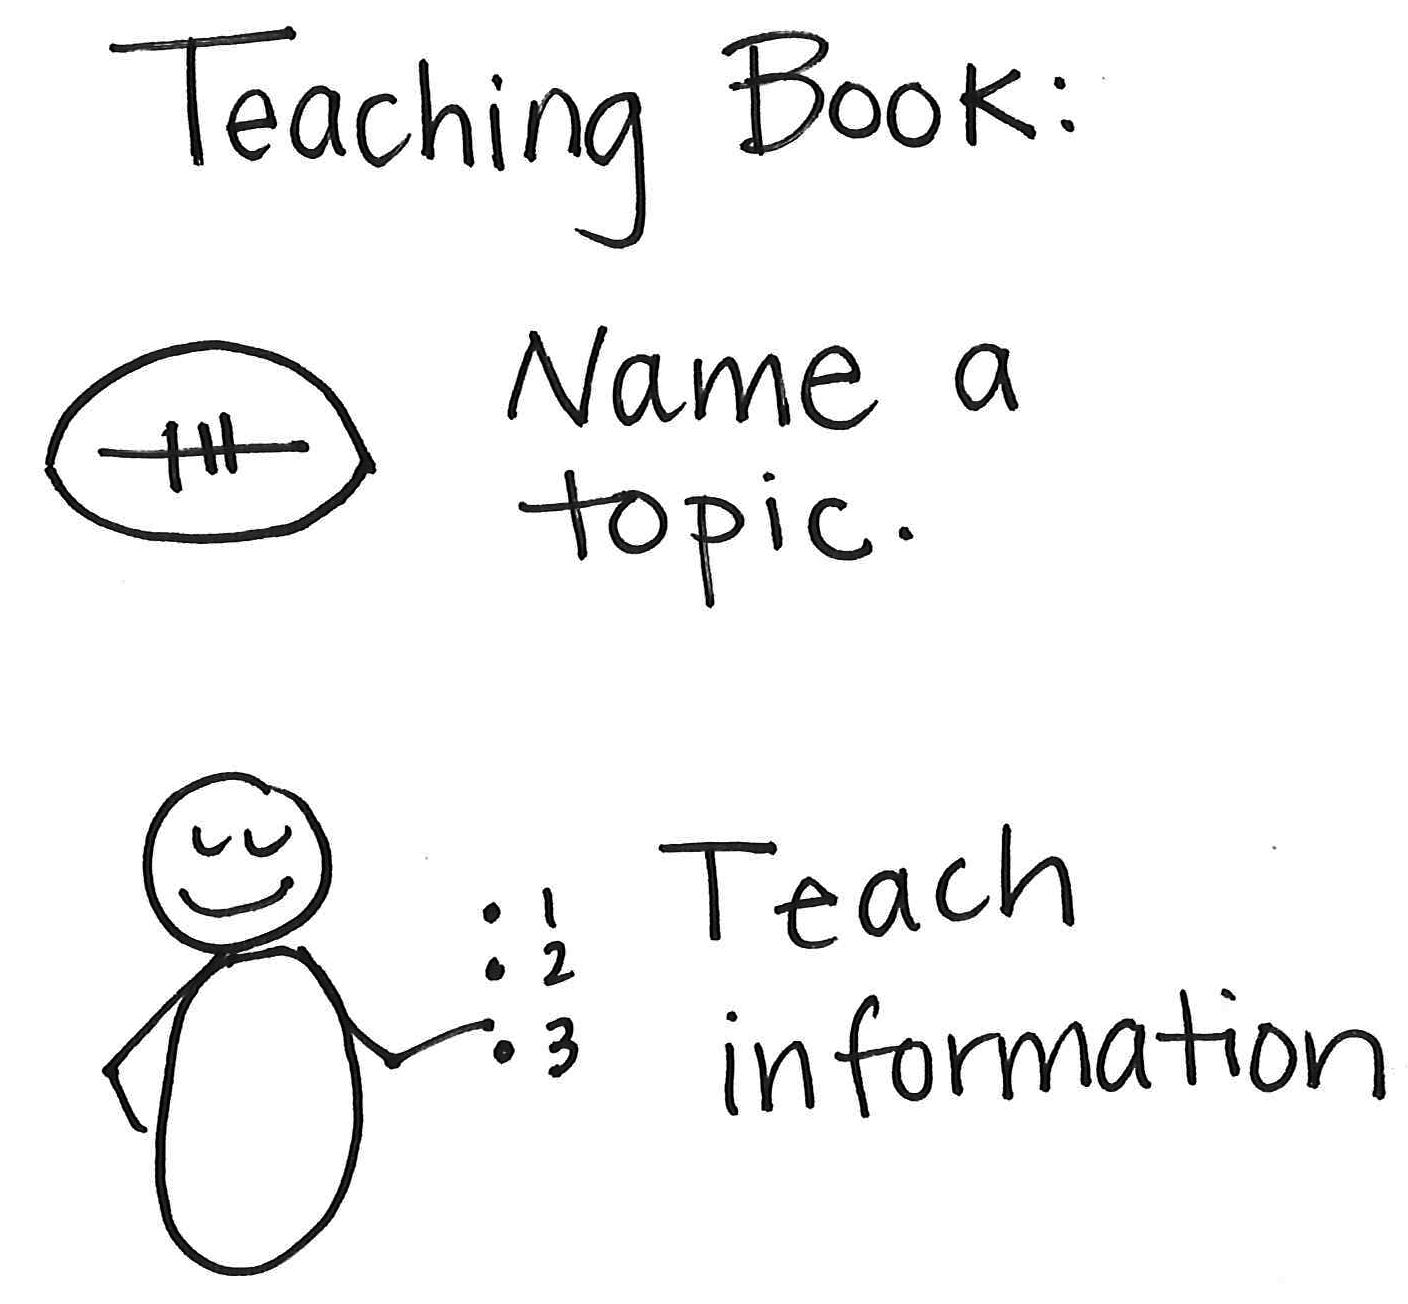 Teaching Book:
Name a
topic.
• 1
• 2
• 3
Teach
information